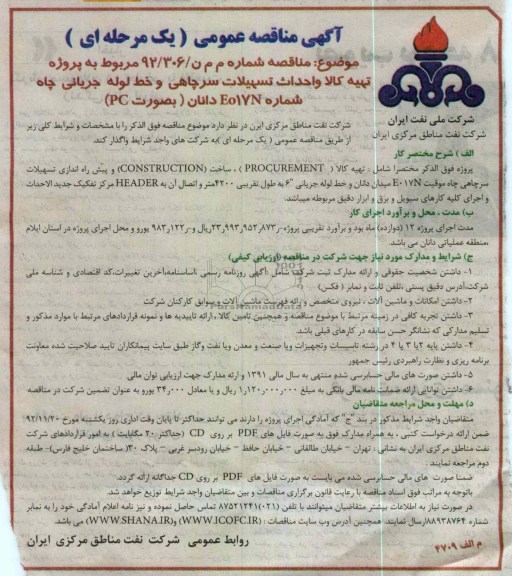 آگهی مناقصه عمومی ( یک مرحله ای )
موضوع: مناقصه شماره م م ن/۹۲/۳۰۶ مربوط به پروژه
تهیه کالا واحداث تسهیلات سرچاهی و خط لوله جریانی چاه
شماره E۰۱۷N دانان ( بصورت PC)
شرکت ملی نفت ایران
شرکت نفت مناطق مرکزی ایران
شرکت نفت مناطق مرکزی ایرن در نظر دارد موضوع مناقصه فوق الذکر را با مشخصات و شرایط کلی زیر
از طریق مناقصه عمومی ( یک مرحله ای )به شرکت های واجد شرایط واگذار کند.
الف ) شرح مختصر کار
پروژه فوق الذکر مختصرا شامل : تهیه کالا ( PROCUREMENT ) ، ساخت (CONSTRUCTION) و پیش راه اندازی تسهیلات
سرچاهی چاه موقعیت E۰۱۷N میدان دانان و خط لوله جریانی "۶ به طول تقریبی ۴۲۰۰متر و اتصال آن به HEADER مرکز تفکیک جدید الاحداث
و اجرای کلیه کارهای سیویل و برق و ابزار دقیق مربوطه میباشد.
ب) مدت ، محل و برآورد اجرای کار
مدت اجرای پروژه ۱۲ (دوازده) ماه بود و برآورد تقریبی پروژه ریال و یورو و محل اجرای پروژه در استان ایلام
،منطقه عملیاتی دانان می باشد.
ج) شرایط و مدارک مورد نیاز جهت شرکت در مناقصه (ارزیابی کیفی)
۱- داشتن شخصیت حقوقی و ارائه مدارک ثبت شرکت شامل :آگهی روزنامه رسمی ،اساسنامه،آخرین تغییرات،کد اقتصادی و شناسه ملی
شرکت،آدرس دقیق پستی ،تلفن ثابت و نمابر ( فکس)
۲- داشتن امکانات و ماشین آلات ، نیروی متخصص و ارائه فهرست ماشین آلات وسوابق کارکنان شرکت
۳- داشتن تجربه کافی در زمینه مرتبط با موضوع مناقصه و همچنین تامین کالا ، ارائه تاییدیه ها و نمونه قراردادهای مرتبط با موارد مذکور و
تسلیم مدارکی که نشانگر حسن سابقه در کارهای قبلی باشد.
۴- داشتن پایه ۲یا ۳ یا ۴ در رشته تاسیسات وتجهیزات ویا صنعت و معدن ویا نفت وگاز طبق سایت پیمانکاران تایید صلاحیت شده معاونت
برنامه ریزی و نظارت راهبردی رئیس جمهور
۵- داشتن صورت های مالی حسابرسی شده منتهی به سال مالی ۱۳۹۱ و ارئه مدارک جهت ارزیابی توان مالی.
۶- داشتن توانائی ارائه ضمانت نامه مالی بانکی به مبلغ ۱٫۱۲۰٫۰۰۰٫۰۰۰ ریال و یا معادل ۳۴٫۰۰۰ یورو به عنوان تضمین شرکت در مناقصه
د) مهلت و محل مراجعه متقاضیان
متقاضیان واجد شرایط مذکور در بند "ج" که آمادگی اجرای پروژه را دارند می توانند حداکثر تا پایان وقت اداری روز یکشنبه مورخ ۹۲/۱۱/۲۰
ضمن ارائه درخواست کتبی ، به همراه مدارک فوق به صورت فایل های PDF بر روی CD (حداکثر ۲۰ مگابایت ) به امور قراردادهای شرکت
نفت مناطق مرکزی ایران به نشانی : تهران – خیابان طالقانی – خیابان حافظ – خیابان رودسر غربی – پلاک ۳۰( ساختمان خلیج فارس)- طبقه
دوم مراجعه نمایند .
ضمنا صورت های مالی حسابرسی شده می بایست به صورت فایل های PDF بر روی CD جداگانه ارائه گردد.
باتوجه به مراتب فوق اسناد مناقصه با رعایت قانون برگزاری مناقصات و بین متقاضیان واجد شرایط توزیع خواهد شد.
در صورت نیاز به اطلاعات بیشتر متقاضیان میتوانند با تلفن (۰۲۱)۸۷۵۲۱۲۴۱ تماس حاصل نموده و نیز نامه اعلام آمادگی خود را به نمابر
شماره ۸۸۹۳۸۷۶۴ارسال نمایند. همچنین آدرس وب سایت مناقصات : (WWW.ICOFC.IR) و(WWW.SHANA.IR) می باشد.
روابط عمومی شرکت نفت مناطق مرکزی ایران
م الف ۴۷۰۹